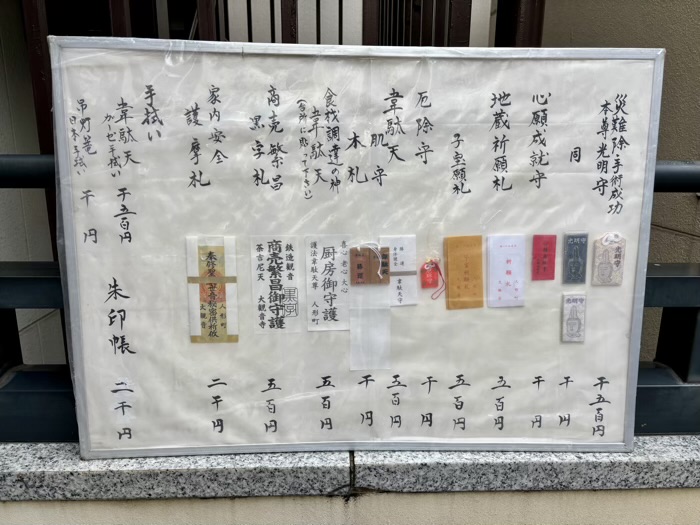 災難除・手術成功
本尊光明守
千五百円
同
千円
心願成就守
千円
地蔵祈願札
五百円
子宝願札
五百円
厄除守
千円
韋駄天
肌守
五百円
木札
千円
食材調達の神
韋駄天
(台所に貼って下さい)
五百円
商売繁昌
黒字札
五百円
家内安全
護摩札
二千円
手拭い
韋駄天
ガーゼ手拭い
千五百円
吊灯篭
日本手拭い
千円
朱印帳
二千円
光明守
光明守
祈願札
韋駄天守
喜心 老心 大心
厨房御守護
護法韋駄天尊
人形町
鉄造観音
商売繁昌御守護
黒字
茶吉尼天
大観音寺
人形町
大観音